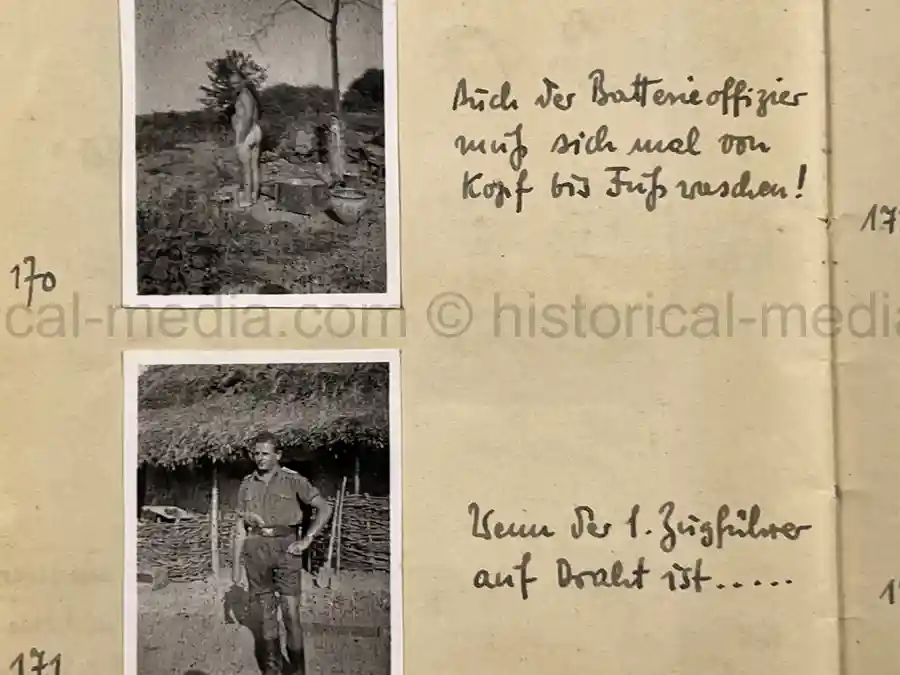 Auch der Batterieoffizier
muß sich mal von
Kopf bis Fuß waschen!
170
cal-media.com © historical-media
Wenn der 1. Zugführer
auf Draht ist.....
171